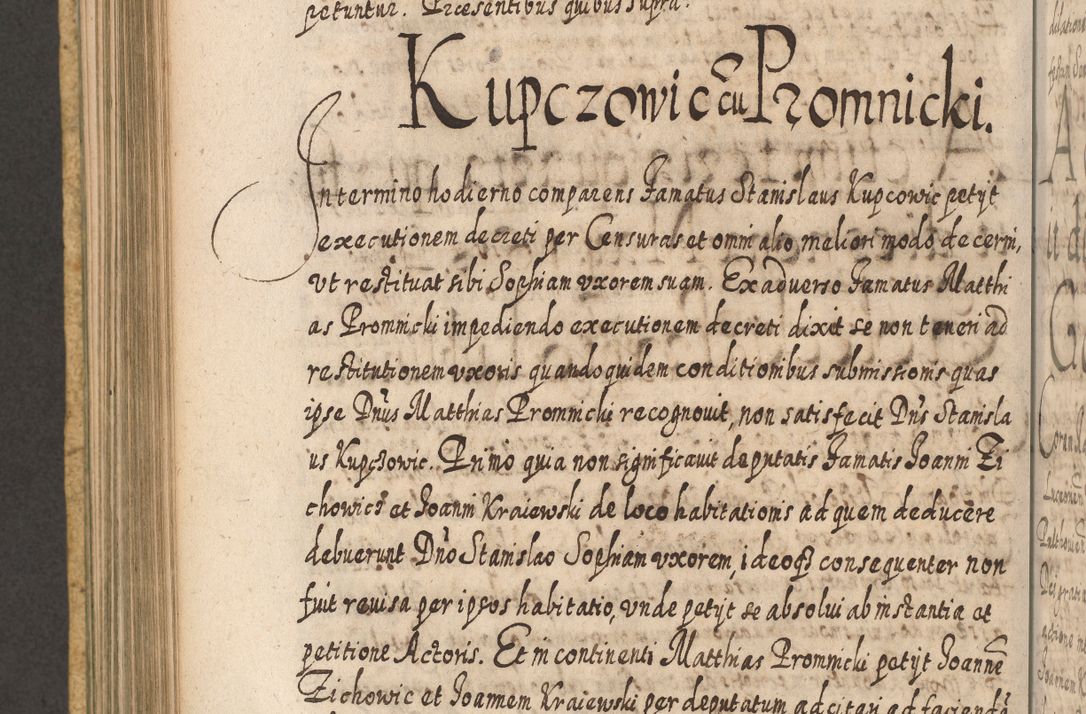 petuntur. Præsentibus quibus supra.
Kupczowic cũ Promnicki.
In termino hodierno comparens famatus Stanislaus Kupcowic petijt
executionem decreti per Censuras et omni alio meliori modo decerni,
vt restituat sibi Sophiam vxorem suam. Ex aduerso famatus Matthi
as Promnicki impediendo executionem decreti dixit se non teneri ad
restitutionem vxoris quandoquidem conditionibus submissionis quas
ipse Dnũs Matthias Promnicki recognouit, non satisfecit Dnũs Stanisla
us Kupczowic. Primo quia non significauit deputatis famatis Joanni Zi
chowicz et Joanni Kraiewski de loco habitationis ad quem deducere
debuerunt Dnõ Stanislao Sophiam vxorem, ideoq3 consequenter non
fuit reuisa per ipsos habitatio, vnde petijt se absolui ab instantia et
petitione Actoris. Et in continenti Matthias Promnicki petijt Joannẽ
Zichowic et Joannem Kraiewski per deputatum ad citari ad faciendã